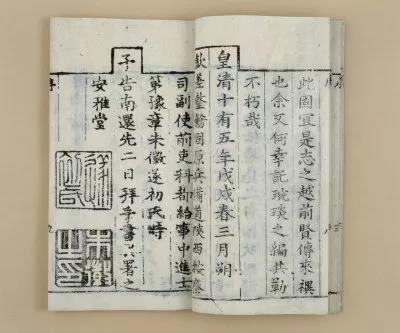 此固宜是志之越前賢傳來禩
也余又何幸託琬琰之編共勒
不朽哉
皇清十有五年戊戌春三月朔
欽差整飭固原兵備道陝西按察
司副使前吏科都給事中進士
第豫章朱徽遂初氏時
予告南還先二日拜手書於署之
安雅堂
朱徽之印